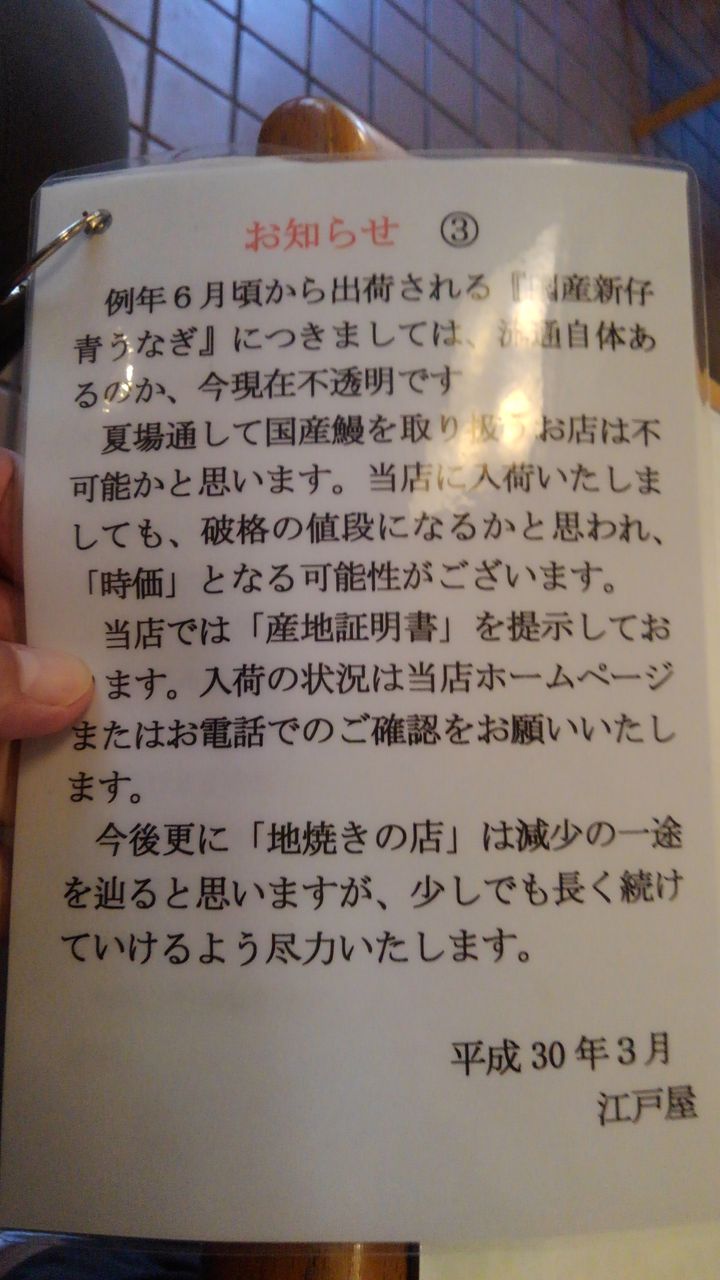 お知らせ ③
例年６月頃から出荷される『国産新仔
青うなぎ』につきましては、流通自体あ
るのか、今現在不透明です
夏場通して国産鰻を取り扱うお店は不
可能かと思います。当店に入荷いたしま
しても、破格の値段になるかと思われ、
「時価」となる可能性がございます。
当店では「産地証明書」を提示してお
ります。入荷の状況は当店ホームページ
またはお電話でのご確認をお願いいたし
ます。
今後更に「地焼きの店」は減少の一途
を辿ると思いますが、少しでも長く続け
ていけるよう尽力いたします。
平成 30 年３月
江戸屋